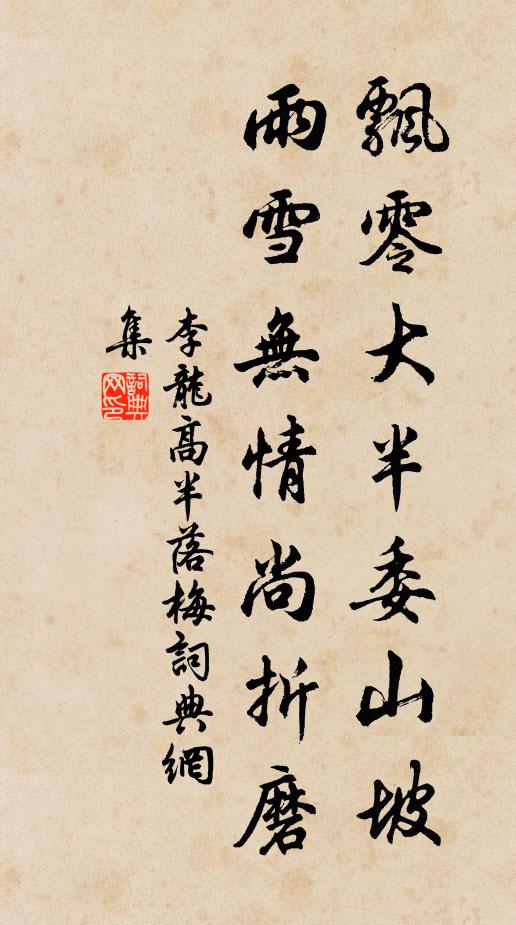 飄零大半委山坡
雨雪無情尚折磨
李龍高半落梅詞典網
集
詞典
网印